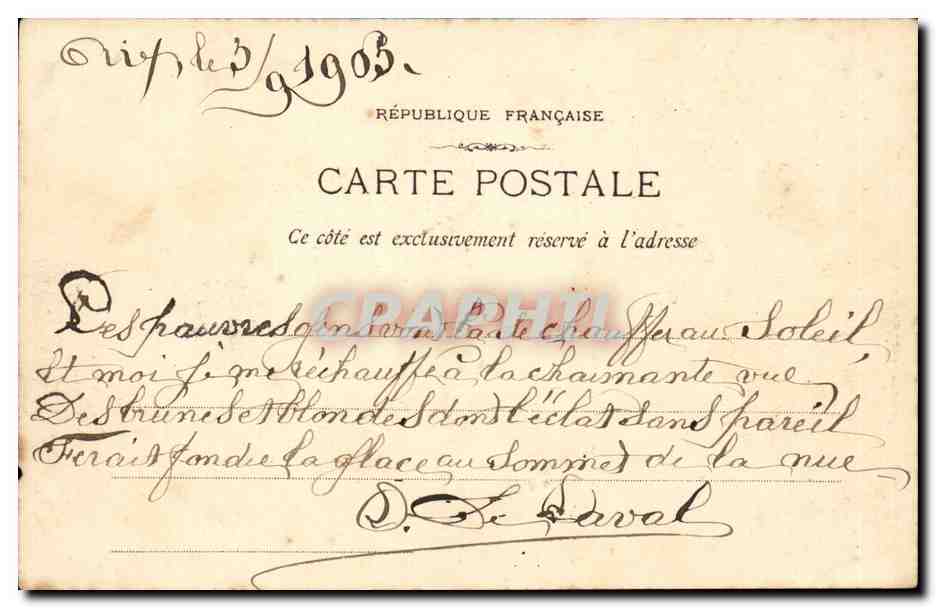 le 3/9 1903.
RÉPUBLIQUE FRANÇAISE
CARTE POSTALE
Ce côté est exclusivement réservé à l'adresse
CPARHII
Les pauvres gens vont là se chauffer au Soleil,
Et moi je me réchauffe à la charmante vue,
Des brunes et blondes dont l'éclat sans pareil
Ferait fondre la glace au sommet de la nue
D. De Laval